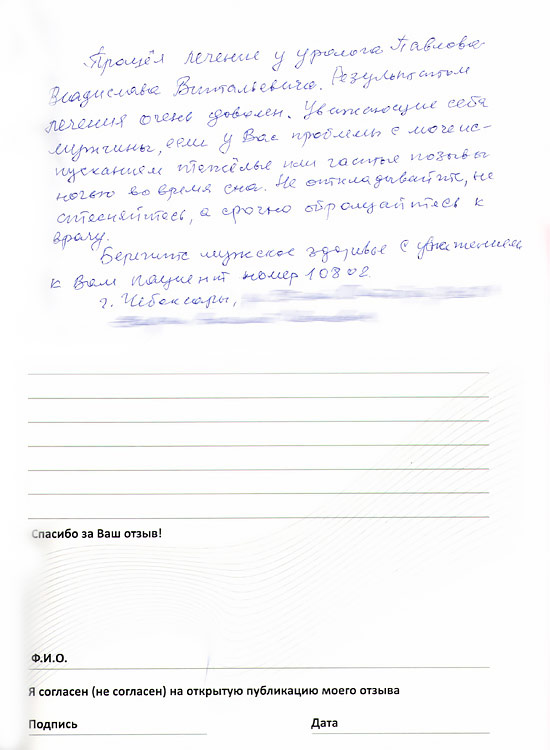 Прошёл лечение у уролога Павлова
Владислава Витальевича. Результатом
лечения очень доволен. Уважающие себя
мужчины, если у Вас проблемы с мочеис-
пусканием тяжёлые или частые позывы
ночью во время сна. Не откладывайте, не
стесняйтесь, а срочно обращайтесь к
врачу.
Берегите мужское здоровье с уважением
к Вам пациент номер 10802
г. Чебоксары,
Спасибо за Ваш отзыв!
Ф.И.О.
Я согласен (не согласен) на открытую публикацию моего отзыва
Подпись Дата